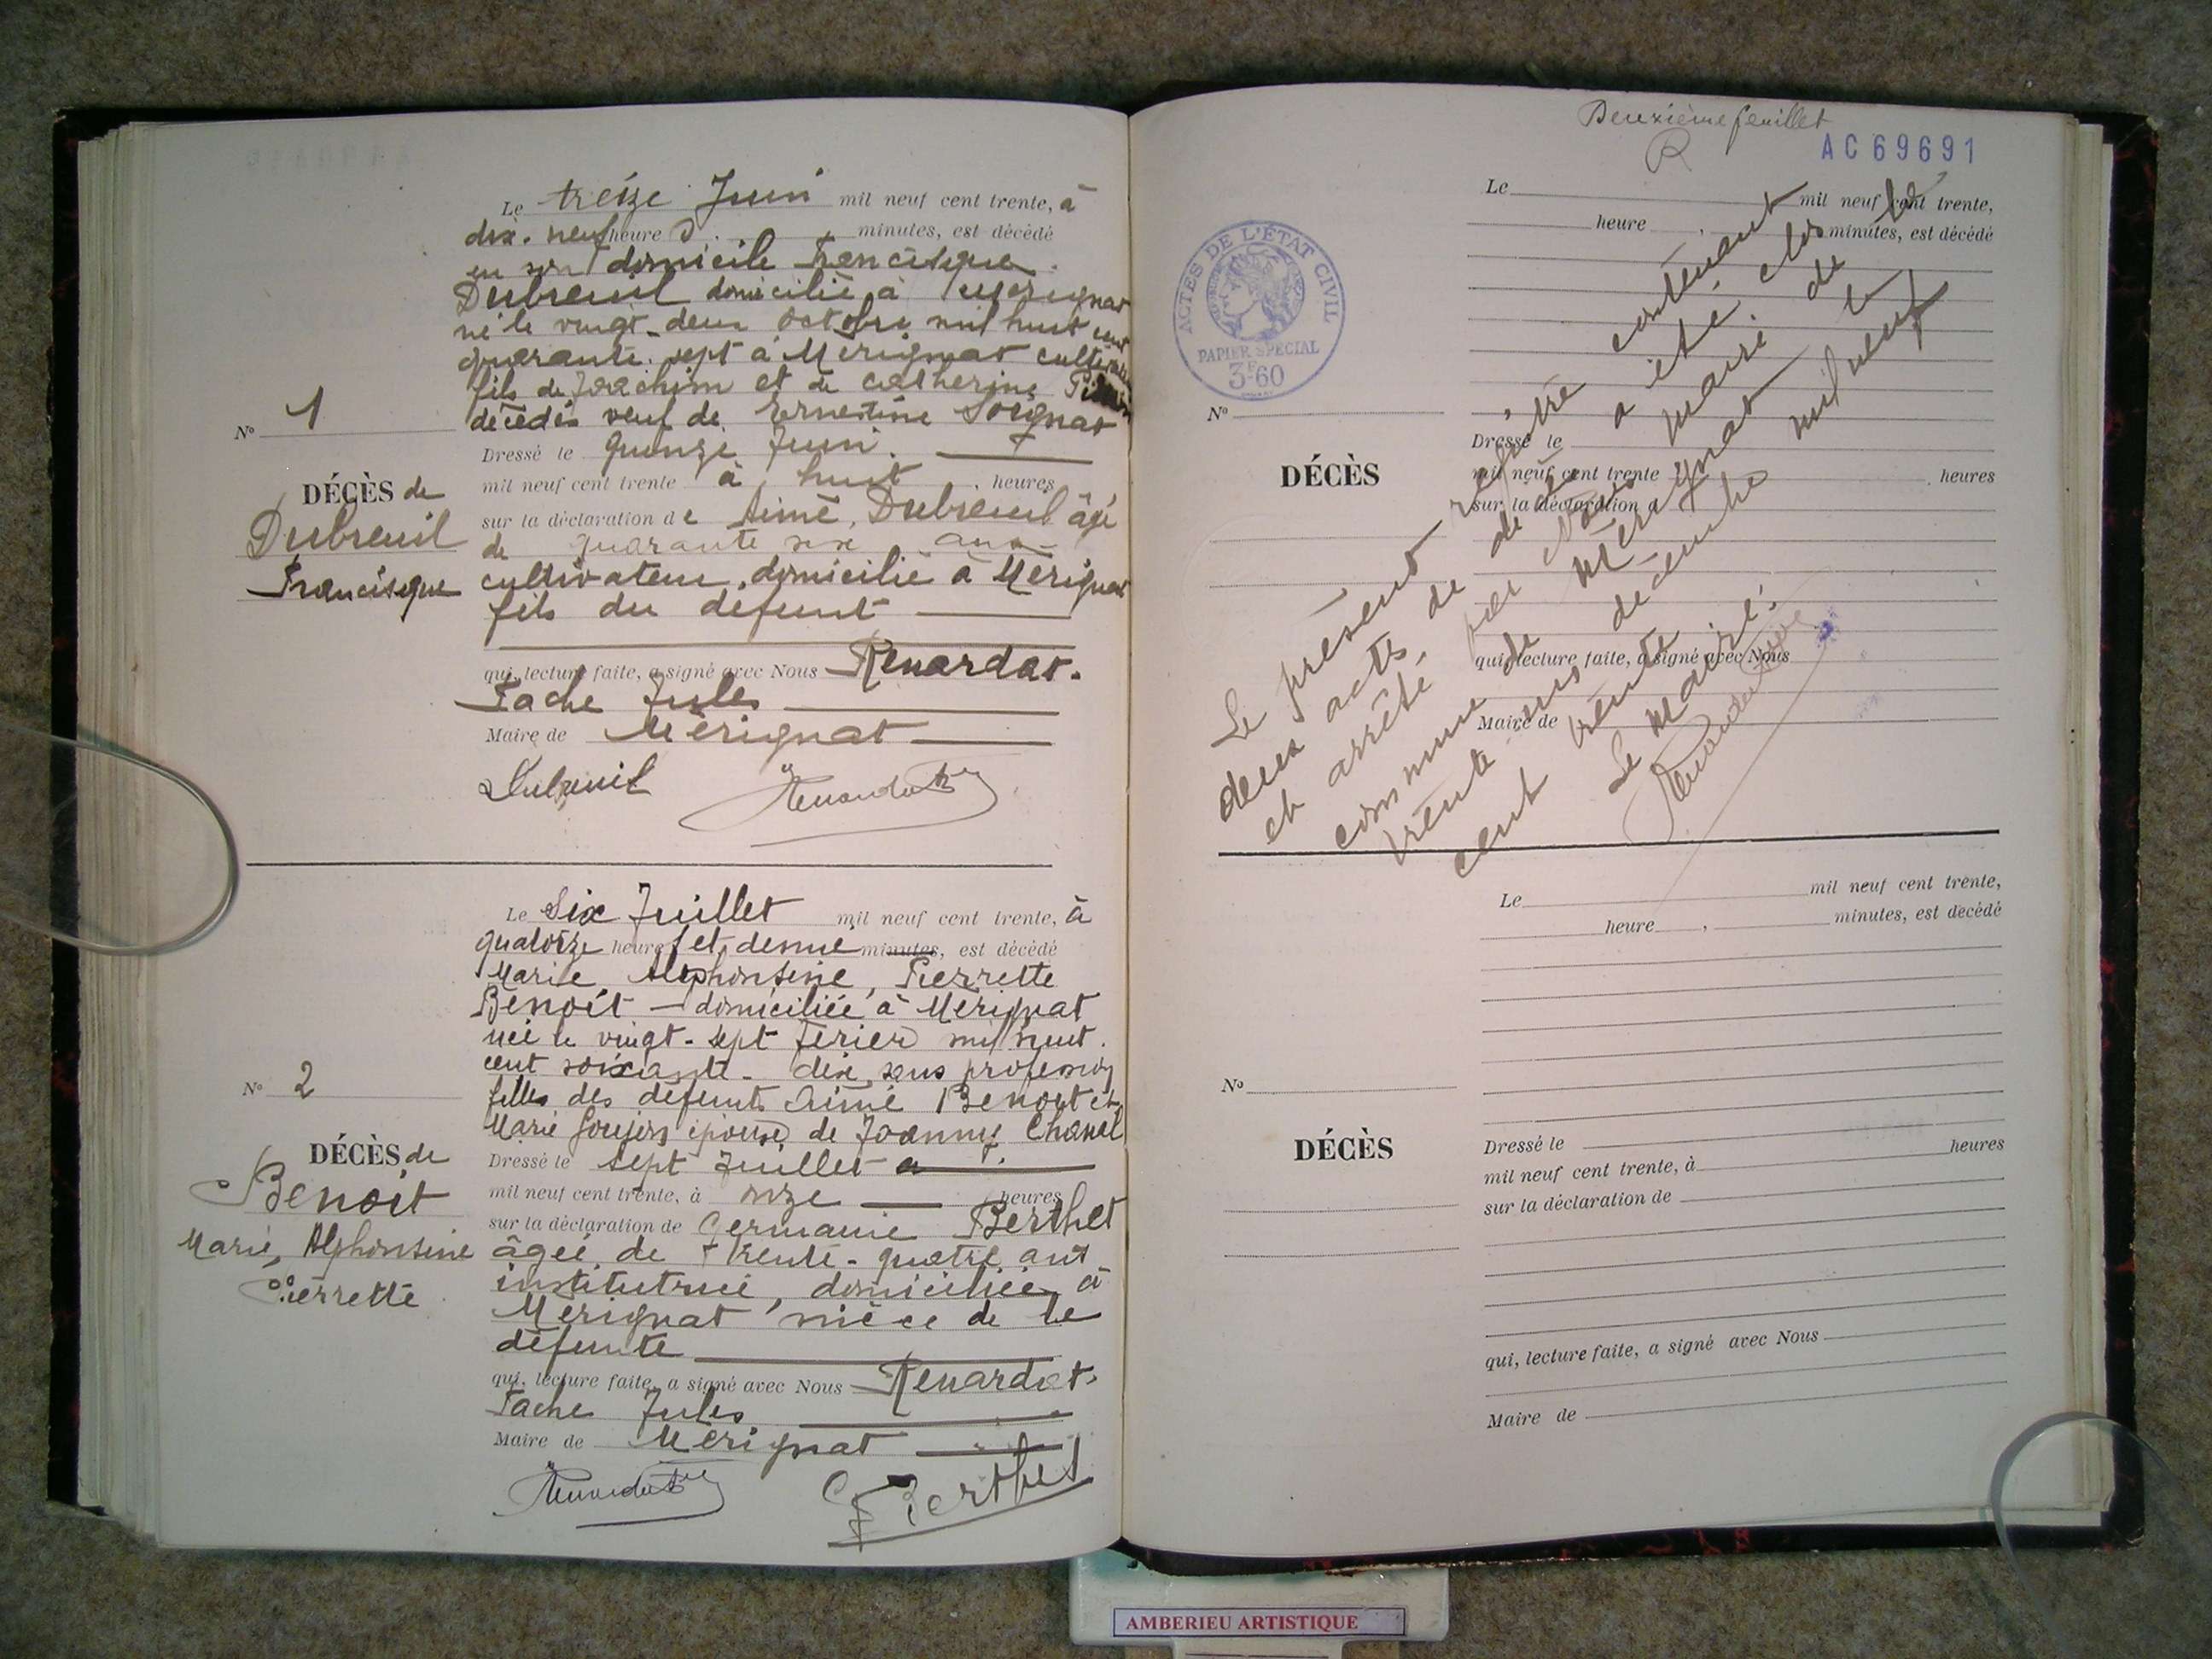 Le treize Juin mil neuf cent trente, à
dix-neuf heures minutes, est décédé
en son domicile Francisque
Dubreuil domicilié à Mérignat
né le vingt-deux Octobre mil huit cent
quarante-sept à Mérignat cultivateur
fils de Joachim et de Catherine
décédés veuf de Ernestine Soignat
N° 1
Dressé le quinze Juin.
DÉCÈS de
mil neuf cent trente à huit heures
Dubreuil
sur la déclaration de Aimé, Dubreuil âgé
de quarante six ans
Francisque
cultivateur, domicilié à Mérignat
fils du défunt
qui, lecture faite, a signé avec Nous Renardat-
Tache Jules
Maire de Mérignat
Dubreuil
Le Six Juillet mil neuf cent trente, à
quatorze heures et demie minutes, est décédé
Marie, Alphonsine, Pierrette
Benoît - domiciliée à Mérignat
née le vingt-sept Férier mil huit
cent soixante-dix, sans profession
filles des défunts Aimé Benoit et
Marie Goujon épouse de Joanny Chanel
N° 2
Dressé le sept Juillet à
DÉCÈS de
mil neuf cent trente, à onze heures
Benoît
sur la déclaration de Germanie Berthet
Marie, Alphonsine
âgée de trente-quatre ans
Pierrette
institutrice, domiciliée à
Mérignat nièce de la
défunte
qui, lecture faite, a signé avec Nous Renardat-
Tache Jules
Maire de Mérignat
G Berthet
Deuxième feuillet
R
AC69691
ACTES DE L'ÉTAT CIVIL
PAPIER SPÉCIAL
3F60
Le mil neuf cent trente,
heure , minutes, est décédé
N°
Dressé le
DÉCÈS
mil neuf cent trente heures
sur la déclaration d
qui, lecture faite, a signé avec Nous
Maire de
Le présent registre contenant
deux actes de décès a été clos
et arrêté par Nous maire de la
commune de Mérignat le
trente-un décembre mil neuf
cent trente
Le Maire.
Le mil neuf cent trente,
heure , minutes, est décédé
N°
DÉCÈS
Dressé le
mil neuf cent trente, à heures
sur la déclaration de
qui, lecture faite, a signé avec Nous
Maire de
AMBERIEU ARTISTIQUE